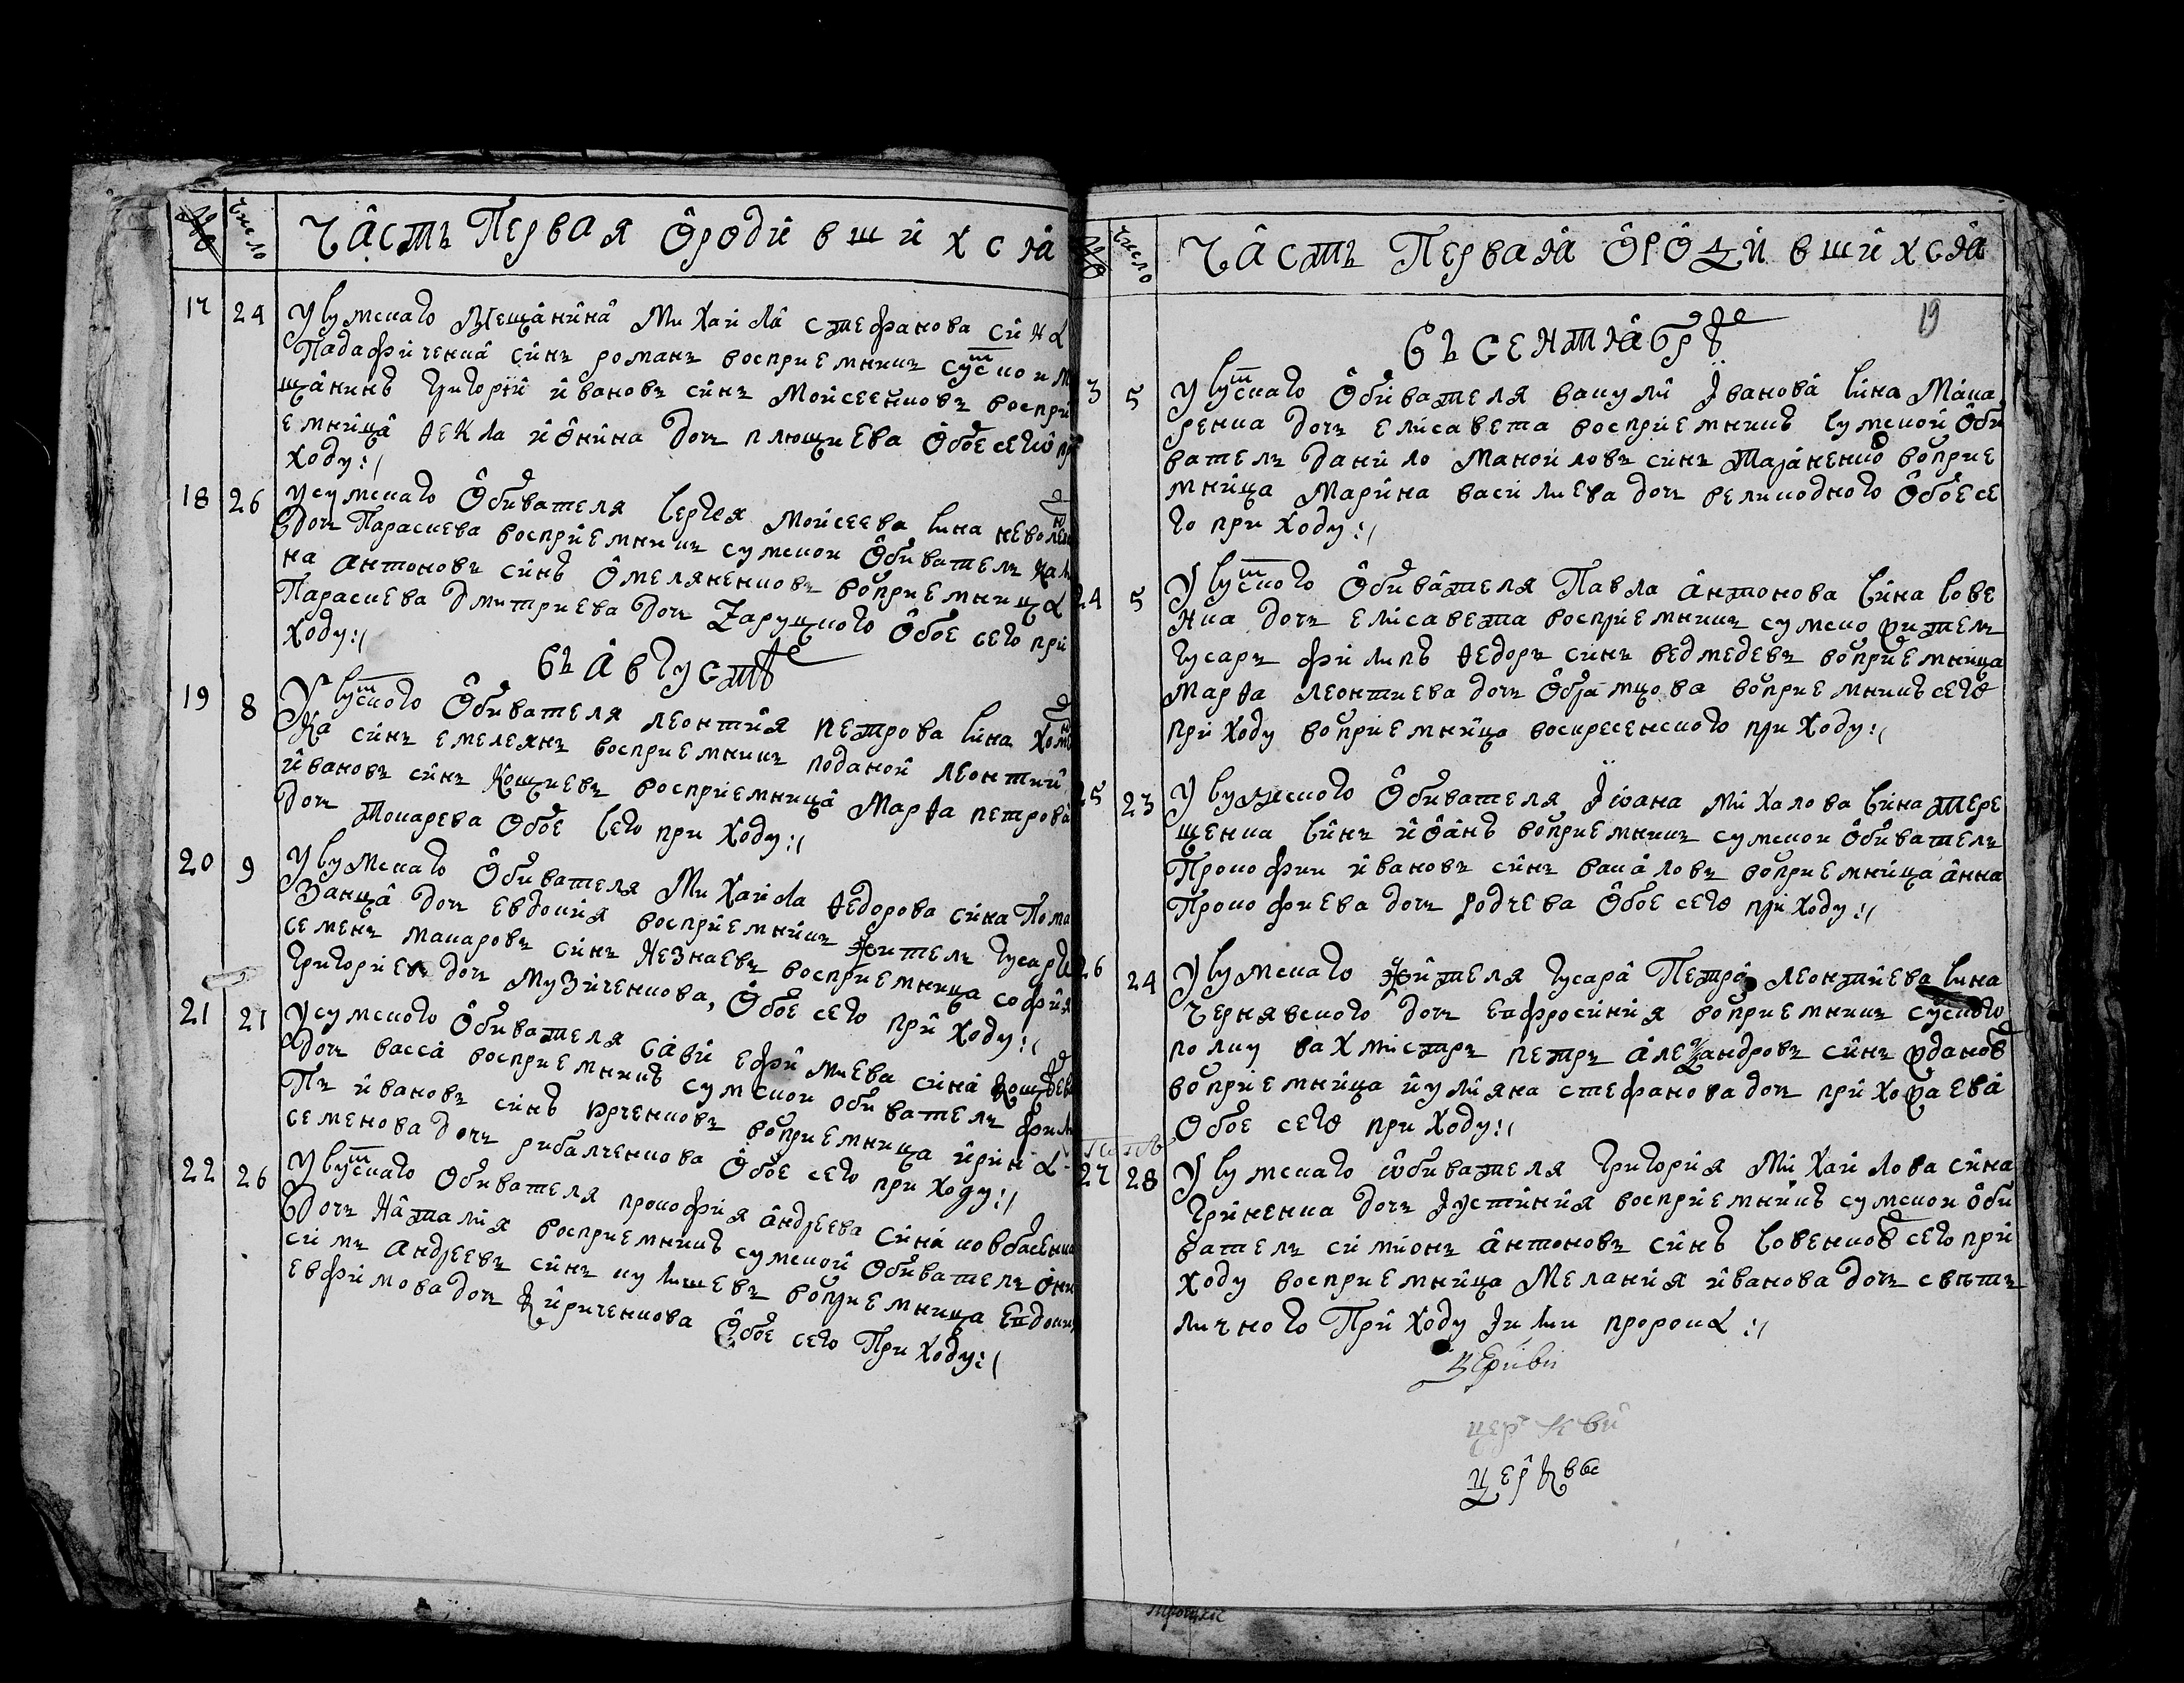 число Часть Первая ѻродившихся
17 24 У сумскаго мещанина Михайла Стефанова сина
Падафиченка синъ романъ восприемникъ сумско м
щанинъ григорій ивановъ синъ Моисеенковъ воспри
емница ѳекла иѡнина дочъ плющиева ѻбое сего пр
ходу:/
18 26 У сумскаго ѻбивателя Сергея Моисеева сина
дочъ Параскева восприемникъ сумской ѻбиватель
на антоновъ синъ ѻмеляненковъ воприемница
Параскева Дмитриева дочъ Zаруцкого ѻбое сего при
ходу:/
Въ августѣ
19 8 У сумского ѻбивателя леонтія петрова сина
ка синъ емелеянъ восприемникъ поданой леонтий
ивановъ синъ Кощиевъ восприемница Марѳа петрова
дочъ токарева ѻбое сего при ходу:/
20 9 У сумскаго ѻбивателя Михайла ѳедорова сина Пома
занца дочъ евдокия восприемникъ житель гусаръ
семенъ макаровъ синъ Незнаевъ восприемница софия
григориева дочъ Музиченкова, ѻбое сего при ходу:/
21 21 У сумского ѻбивателя сави ефимиева сина
дочъ васса восприемникъ сумской обиватель фили
пъ ивановъ синъ юрченковъ воприемница ирина
семенова дочъ рибалченкова ѻбое сего при ходу:/
22 26 У сумскаго ѻбивателя прокофия андреева сина ковбасенка
дочъ Наталия восприемникъ сумской ѻбиватель ѻни
симъ андреевъ синъ кулишевъ воприемница Евдоки
евфимова дочъ Кириченкова ѻбое сего При ходу:/
число Часть Первая ѻродившихся
19
Въ сентябрѣ
3 5 У сумскаго ѻбивателя вакули Iванова сина Мака
ренка дочъ елисавета восприемникъ сумской ѻби
ватель данило Мановловъ синъ тараненко воприе
мница Марина василиева дочъ великодного ѻбое се
го при ходу:/
24 5 У сумского ѻбивателя Павла антонова сина сове
нка дочъ елисавета восприемникъ сумско житель
гусаръ филипъ ѳедоръ синъ ведмедевъ воприемница
марѳа леонтиева дочъ ѻбрамцова воприемникъ сего
при ходу воприемница воскресенского при ходу:/
25 23 У сумского ѻбивателя Iѡана михалова сина тере
щенка синъ иѻанъ воприемникъ сумской ѻбиватель
Прокофии ивановъ синъ вакаловъ воприемница анна
Прокофиева дочъ родчева ѻбое сего при ходу:/
26 24 У сумскаго жителя гусара Петра леонтиева сина
чернявского дочъ ефросиния воприемникъ сумского
полку вахмистръ петръ алеѯандровъ синъ ждановъ
воприемница иулияна стефанова дочъ прихожаева
ѻбое сего при ходу:/
27 28 У сумскаго ѡбивателя григория михайлова сина
гриненка дочъ Iустиния восприемникъ сумской ѻби
ватель симионъ антоновъ синъ совенковъ сего при
ходу восприемница Мелания иванова дочъ свѣти
личного При ходу Iилии пророка:/
церкви
церкви
церквы